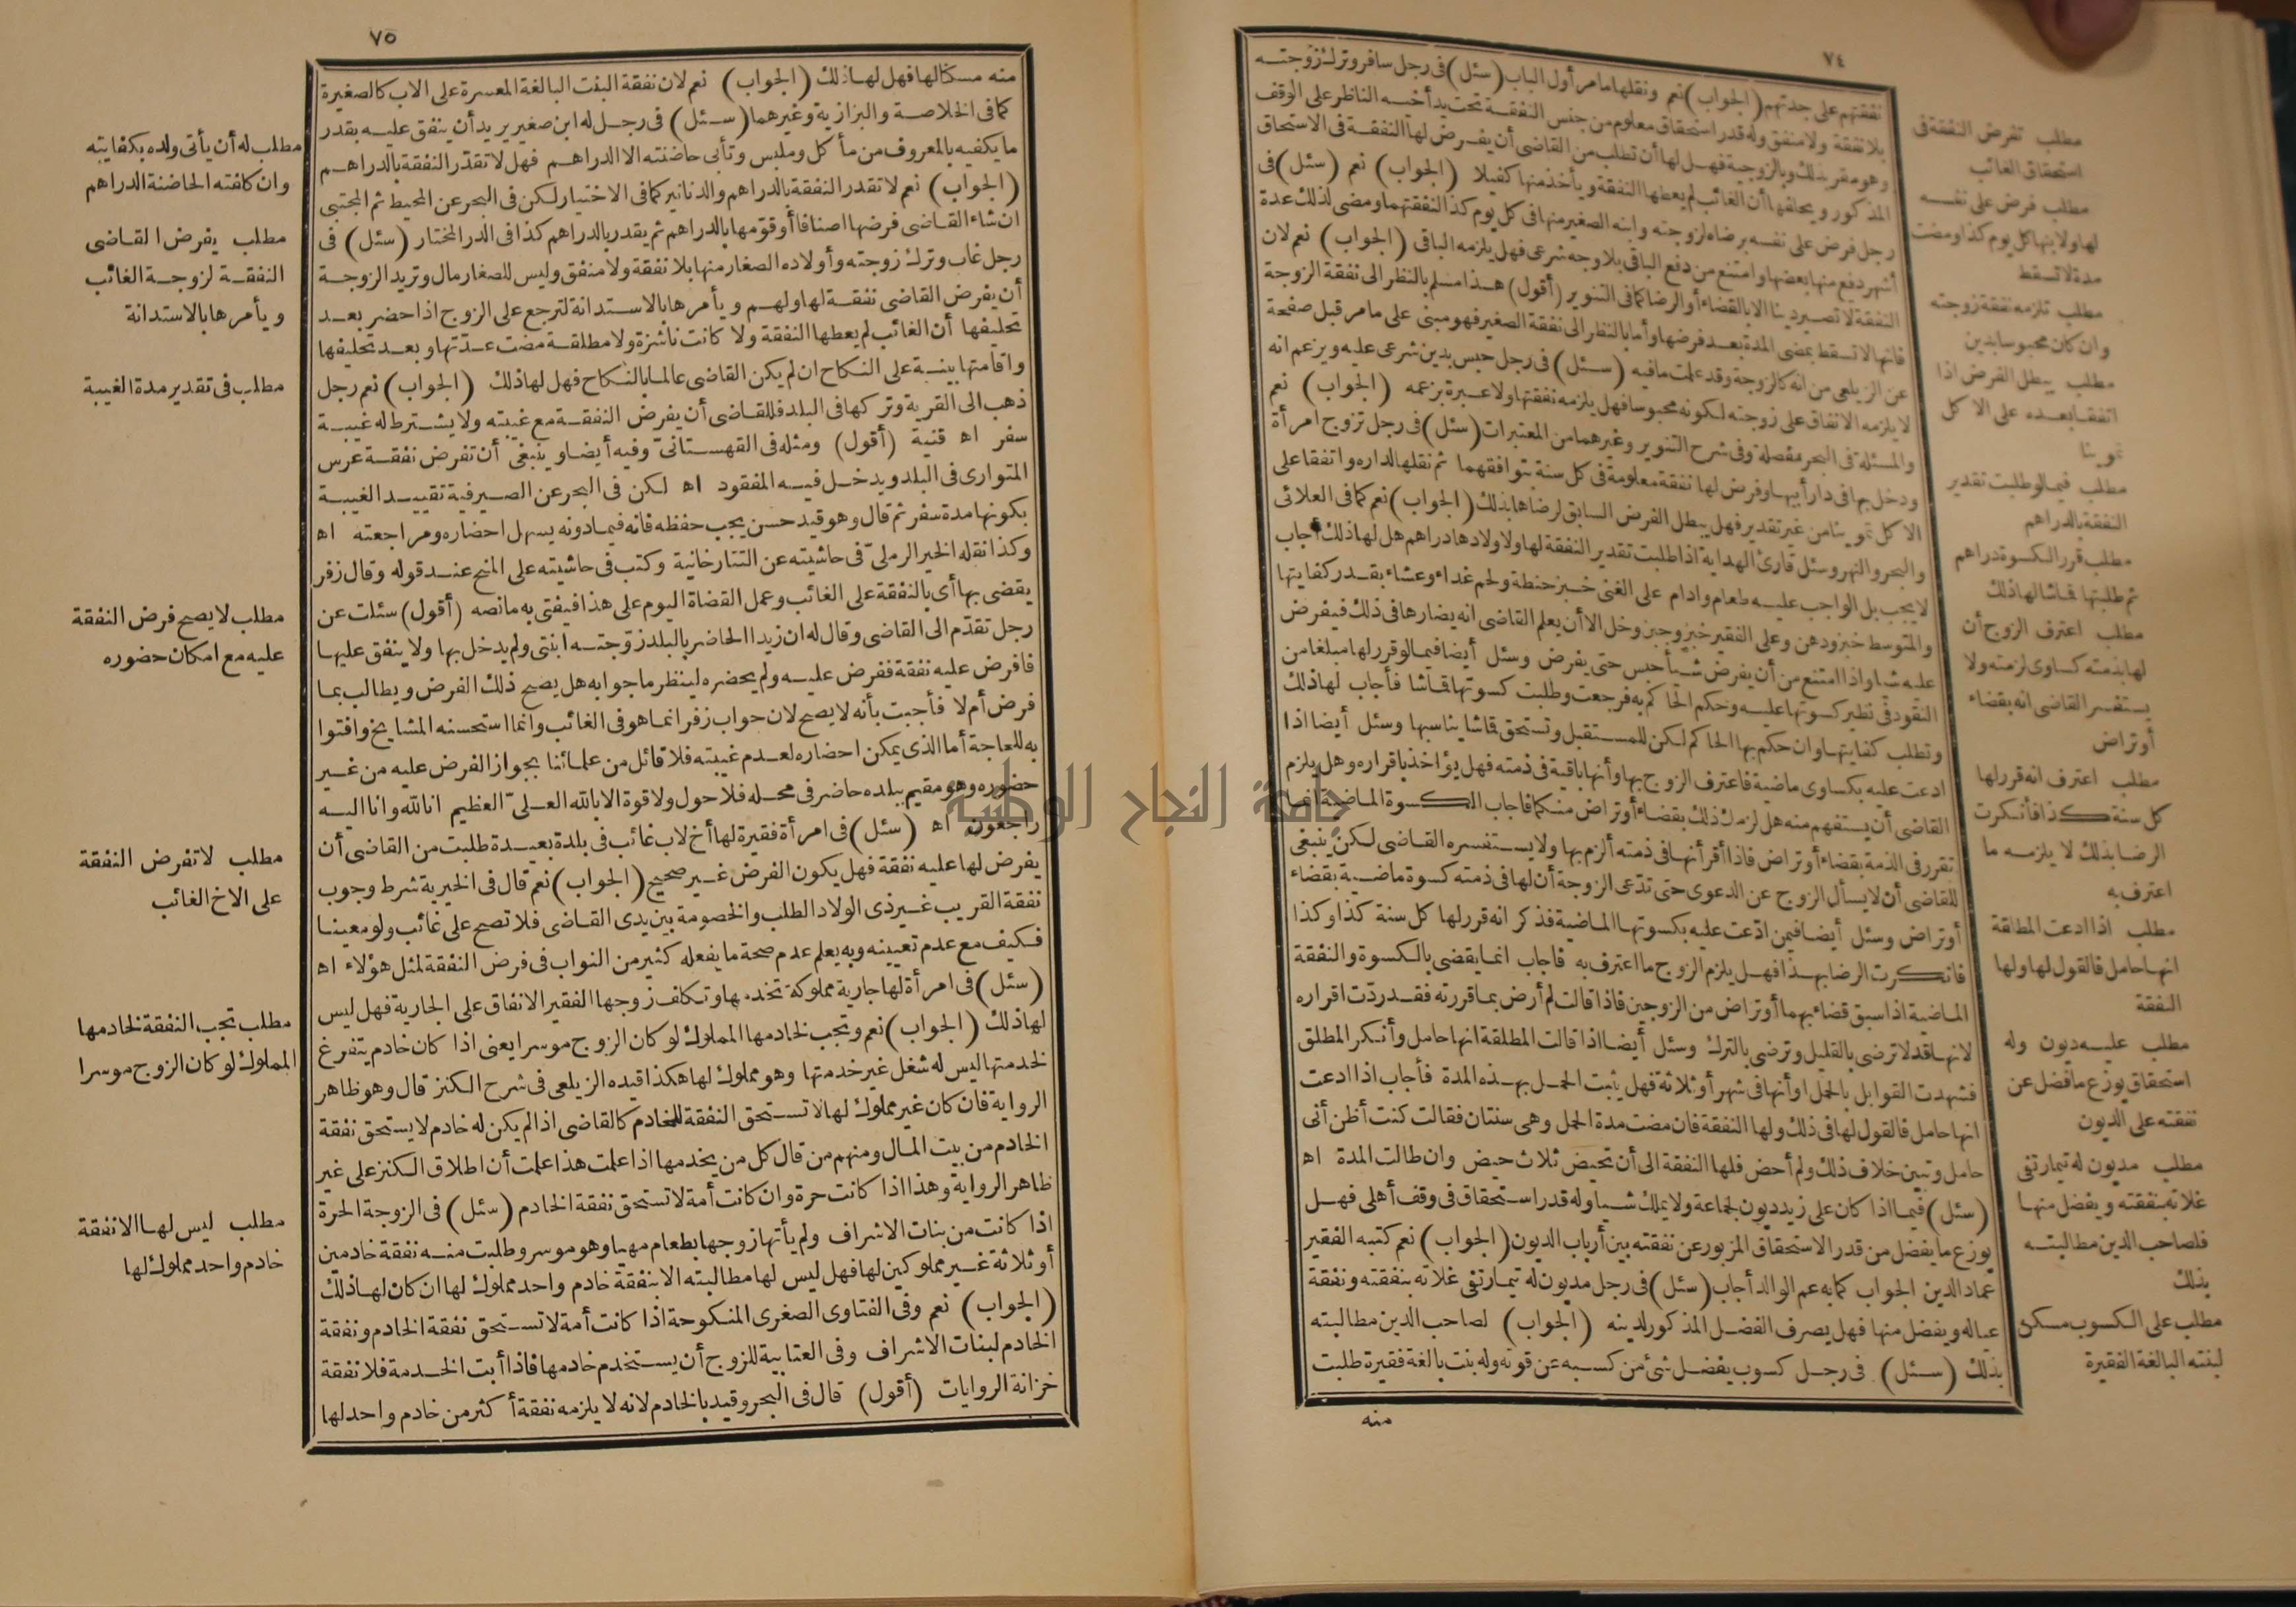 ٧٤
نفقتهم على جدتهم (الجواب) نعم ونقلها مامر أول الباب (سئل) فى رجل سافر وترك زوجته
بلا نفقة ولا منفق وله قدر استحقاق معلوم من جنس النفقة تحت يد أخيه الناظر على الوقف
وهو مقر بذلك وبالزوجية فهل لها أن تطلب من القاضى أن يفرض لها النفقة فى الاستحقاق
المذكور ويحلفها أن الغائب لم يعطها النفقة ويأخذ منها كفيلا (الجواب) نعم (سئل) فى
رجل فرض على نفسه برضاه لزوجته وابنه الصغير منها فى كل يوم كذا لنفقتهما ومضى لذلك عدة
أشهر دفع منها بعضها وامتنع من دفع الباقى بلا وجه شرعى فهل يلزمه الباقى (الجواب) نعم لان
النفقة لا تصير دينا الا بالقضاء أو الرضا كما فى التنوير (أقول) هذا مسلم بالنظر الى نفقة الزوجة
فانها لا تسقط بمضى المدة بعد فرضها وأما بالنظر الى نفقة الصغير فهو مبنى على ما مر قبل صفحة
عن الزيلعى من انه كالزوجة وقد علمت ما فيه (سئل) فى رجل حبس بدين شرعى عليه ويزعم انه
لا يلزمه الانفاق على زوجته لكونه محبوسا فهل يلزمه نفقتها ولا عبرة بزعمه (الجواب) نعم
والمسئلة فى البحر مفصلة وفى شرح التنوير وغيرهما من المعتبرات (سئل) فى رجل تزوج امرأة
ودخل بها فى دار أبيها وفرض لها نفقة معلومة فى كل سنة بتوافقهما ثم نقلها لداره واتفقا على
الاكل تموينا من غير تقدير فهل يبطل الفرض السابق لرضاها بذلك (الجواب) نعم كما فى العلائى
والبحر والنهر وسئل قارئ الهداية اذا طلبت تقدير النفقة لها ولاولادها دراهم هل لها ذلك أجاب
لا يجب بل الواجب عليه طعام وادام على الغنى خبز حنطة ولحم غداء وعشاء بقدر كفايتها
والمتوسط خبز ودهن وعلى الفقير خبز وجبن وخل الا أن يعلم القاضى انه يضارها فى ذلك فيفرض
عليه شيأ واذا امتنع من أن يفرض شيأ حبس حتى يفرض وسئل أيضا فيما لو قرر لها مبلغا من
النقود فى نظير كسوتها عليه وحكم الحاكم به فرجعت وطلبت كسوتها قماشا فأجاب لها ذلك
وتطلب كفايتها وان حكم بها الحاكم لكن للمستقبل وتستحق قماشا يناسبها وسئل أيضا اذا
ادعت عليه بكساوى ماضية فاعترف الزوج بها وأنها باقية فى ذمته فهل يؤاخذ باقراره وهل يلزم
القاضى أن يستفهم منه هل لزمك ذلك بقضاء أو تراض منكما فاجاب الكسوة الماضية انما
تقرر فى الذمة بقضاء أو تراض فاذا أقر أنها فى ذمته ألزم بها ولا يستفسره القاضى لكن ينبغى
للقاضى أن لا يسأل الزوج عن الدعوى حتى تدعى الزوجة أن لها فى ذمته كسوة ماضية بقضاء
أو تراض وسئل أيضا فيمن ادعت عليه بكسوتها الماضية فذكر انه قرر لها كل سنة كذا وكذا
فانكرت الرضا بهذا فهل يلزم الزوج ما اعترف به فاجاب انما يقضى بالكسوة والنفقة
الماضية اذا سبق قضاء بهما أو تراض من الزوجين فاذا قالت لم أرض بما قررته فقد ردت اقراره
لانها قد لا ترضى بالقليل وترضى بالترك وسئل أيضا اذا قالت المطلقة انها حامل وأنكر المطلق
فشهدت القوابل بالحمل او أنها فى شهر أو ثلاثة فهل يثبت الحمل بهذه المدة فأجاب اذا ادعت
انها حامل فالقول لها فى ذلك ولها النفقة فان مضت مدة الحمل وهى سنتان فقالت كنت أظن أنى
حامل وتبين خلاف ذلك ولم أحض فلها النفقة الى أن تحيض ثلاث حيض وان طالت المدة اه
(سئل) فيما اذا كان على زيد ديون لجماعة ولا يملك شيأ وله قدر استحقاق فى وقف أهلى فهل
يوزع ما يفضل من قدر الاستحقاق المزبور عن نفقته بين أرباب الديون (الجواب) نعم كتبه الفقير
عماد الدين الجواب كما به عم الوالد أجاب (سئل) فى رجل مديون له تيمار تفى غلاته بنفقته ونفقة
عياله ويفضل منها فهل يصرف الفضل المذكور لدينه (الجواب) لصاحب الدين مطالبته
بذلك (سئل) فى رجل كسوب يفضل شئ من كسبه عن قوته وله بنت بالغة فقيرة طلبت
منه
مطلب تفرض النفقة فى
استحقاق الغائب
مطلب فرض على نفسه
لها ولابنها كل يوم كذا ومضت
مدة لا تسقط
مطلب تلزمه نفقة زوجته
وان كان محبوسا بدين
مطلب يبطل الفرض اذا
اتفقا بعده على الاكل
تموينا
مطلب فيما لو طلبت تقدير
النفقة بالدراهم
مطلب قرر الكسوة دراهم
ثم طلبتها قماشا لها ذلك
مطلب اعترف الزوج أن
لها بذمته كساوى لزمته ولا
يستفسر القاضى انه بقضاء
أو تراض
مطلب اعترف انه قرر لها
كل سنة كذا فأنكرت
الرضا بذلك لا يلزمه ما
اعترف به
مطلب اذا ادعت المطلقة
انها حامل فالقول لها ولها
النفقة
مطلب عليه ديون وله
استحقاق يوزع ما فضل عن
نفقته على الديون
مطلب مديون له تيمار تفى
غلاته بنفقته ويفضل منها
فلصاحب الدين مطالبته
بذلك
مطلب على الكسوب مسكن
لبنته البالغة الفقيرة
٧٥
منه مسكنا لها فهل لها ذلك (الجواب) نعم لان نفقة البنت البالغة المعسرة على الاب كالصغيرة
كما فى الخلاصة والبزازية وغيرهما (سئل) فى رجل له ابن صغير يريد أن ينفق عليه بقدر
ما يكفيه بالمعروف من مأكل وملبس وتأبى حاضنته الا الدراهم فهل لا تقدر النفقة بالدراهم
(الجواب) نعم لا تقدر النفقة بالدراهم والدنانير كما فى الاختيار لكن فى البحر عن المحيط ثم المجتبى
ان شاء القاضى فرضها اصنافا أو قومها بالدراهم ثم يقدر بالدراهم كذا فى الدر المختار (سئل) فى
رجل غاب وترك زوجته وأولاده الصغار منها بلا نفقة ولا منفق وليس للصغار مال وتريد الزوجة
أن يفرض القاضى نفقة لها ولهم ويأمرها بالاستدانة لترجع على الزوج اذا حضر بعد
تحليفها أن الغائب لم يعطها النفقة ولا كانت ناشزة ولا مطلقة مضت عدتها وبعد تحليفها
واقامتها بينة على النكاح ان لم يكن القاضى عالما بالنكاح فهل لها ذلك (الجواب) نعم رجل
ذهب الى القرية وتركها فى البلد فللقاضى أن يفرض النفقة مع غيبته ولا يشترط له غيبة
سفر اه قنية (أقول) ومثله فى القهستانى وفيه أيضا وينبغى أن تفرض نفقة عرس
المتوارى فى البلد ويدخل فيه المفقود اه لكن فى البحر عن الصيرفية تقييد الغيبة
بكونها مدة سفر ثم قال وهو قيد حسن يجب حفظه فانه فيما دونه يسهل احضاره ومراجعته اه
وكذا نقله الخير الرملى فى حاشيته عن التتارخانية وكتب فى حاشيته على المنح عند قوله وقال زفر
يقضى بها أى بالنفقة على الغائب وعمل القضاة اليوم على هذا فيفتى به ما نصه (أقول) سئلت عن
رجل تقدم الى القاضى وقال له ان زيدا الحاضر بالبلد زوجته ابنتى ولم يدخل بها ولا ينفق عليها
فافرض عليه نفقة ففرض عليه ولم يحضره لينظر ما جوابه هل يصح ذلك الفرض ويطالب بما
فرض أم لا فأجبت بأنه لا يصح لان جواب زفر انما هو فى الغائب وانما استحسنه المشايخ وافتوا
به للحاجة أما الذى يمكن احضاره لعدم غيبته فلا قائل من علمائنا بجواز الفرض عليه من غير
حضوره وهو مقيم ببلده حاضر فى محله فلا حول ولا قوة الا بالله العلى العظيم انا لله وانا اليه
راجعون اه (سئل) فى امرأة فقيرة لها أخ لاب غائب فى بلدة بعيدة طلبت من القاضى أن
يفرض لها عليه نفقة فهل يكون الفرض غير صحيح (الجواب) نعم قال فى الخيرية شرط وجوب
نفقة القريب غير ذى الولاد الطلب والخصومة بين يدى القاضى فلا تصح على غائب ولو معينا
فكيف مع عدم تعيينه وبه يعلم عدم صحة ما يفعله كثير من النواب فى فرض النفقة لمثل هؤلاء اه
(سئل) فى امرأة لها جارية مملوكة تخدمها وتكلف زوجها الفقير الانفاق على الجارية فهل ليس
لها ذلك (الجواب) نعم وتجب لخادمها المملوك لو كان الزوج موسرا يعنى اذا كان خادم يتفرغ
لخدمتها ليس له شغل غير خدمتها وهو مملوك لها هكذا قيده الزيلعى فى شرح الكنز قال وهو ظاهر
الرواية فان كان غير مملوك لها لا تستحق النفقة للخادم كالقاضى اذا لم يكن له خادم لا يستحق نفقة
الخادم من بيت المال ومنهم من قال كل من يخدمها اذا علمت هذا علمت أن اطلاق الكنز على غير
ظاهر الرواية وهذا اذا كانت حرة وان كانت أمة لا تستحق نفقة الخادم (سئل) فى الزوجة الحرة
اذا كانت من بنات الاشراف ولم يأتها زوجها بطعام مهيا وهو موسر وطلبت منه نفقة خادمين
أو ثلاثة غير مملوكين لها فهل ليس لها مطالبته الا بنفقة خادم واحد مملوك لها ان كان لها ذلك
(الجواب) نعم وفى الفتاوى الصغرى المنكوحة اذا كانت أمة لا تستحق نفقة الخادم ونفقة
الخادم لبنات الاشراف وفى العتابية للزوج أن يستخدم خادمها فاذا أبت الخدمة فلا نفقة
خزانة الروايات (أقول) قال فى البحر وقيد بالخادم لانه لا يلزمه نفقة أكثر من خادم واحد لها
مطلب له أن يأتى ولده بكفايته
وان كلفته الحاضنة الدراهم
مطلب يفرض القاضى
النفقة لزوجة الغائب
ويأمرها بالاستدانة
مطلب فى تقدير مدة الغيبة
مطلب لا يصح فرض النفقة
عليه مع امكان حضوره
مطلب لا تفرض النفقة
على الاخ الغائب
مطلب تجب النفقة لخادمها
المملوك لو كان الزوج موسرا
مطلب ليس لها الا نفقة
خادم واحد مملوك لها
جامعة النجاح الوطنية